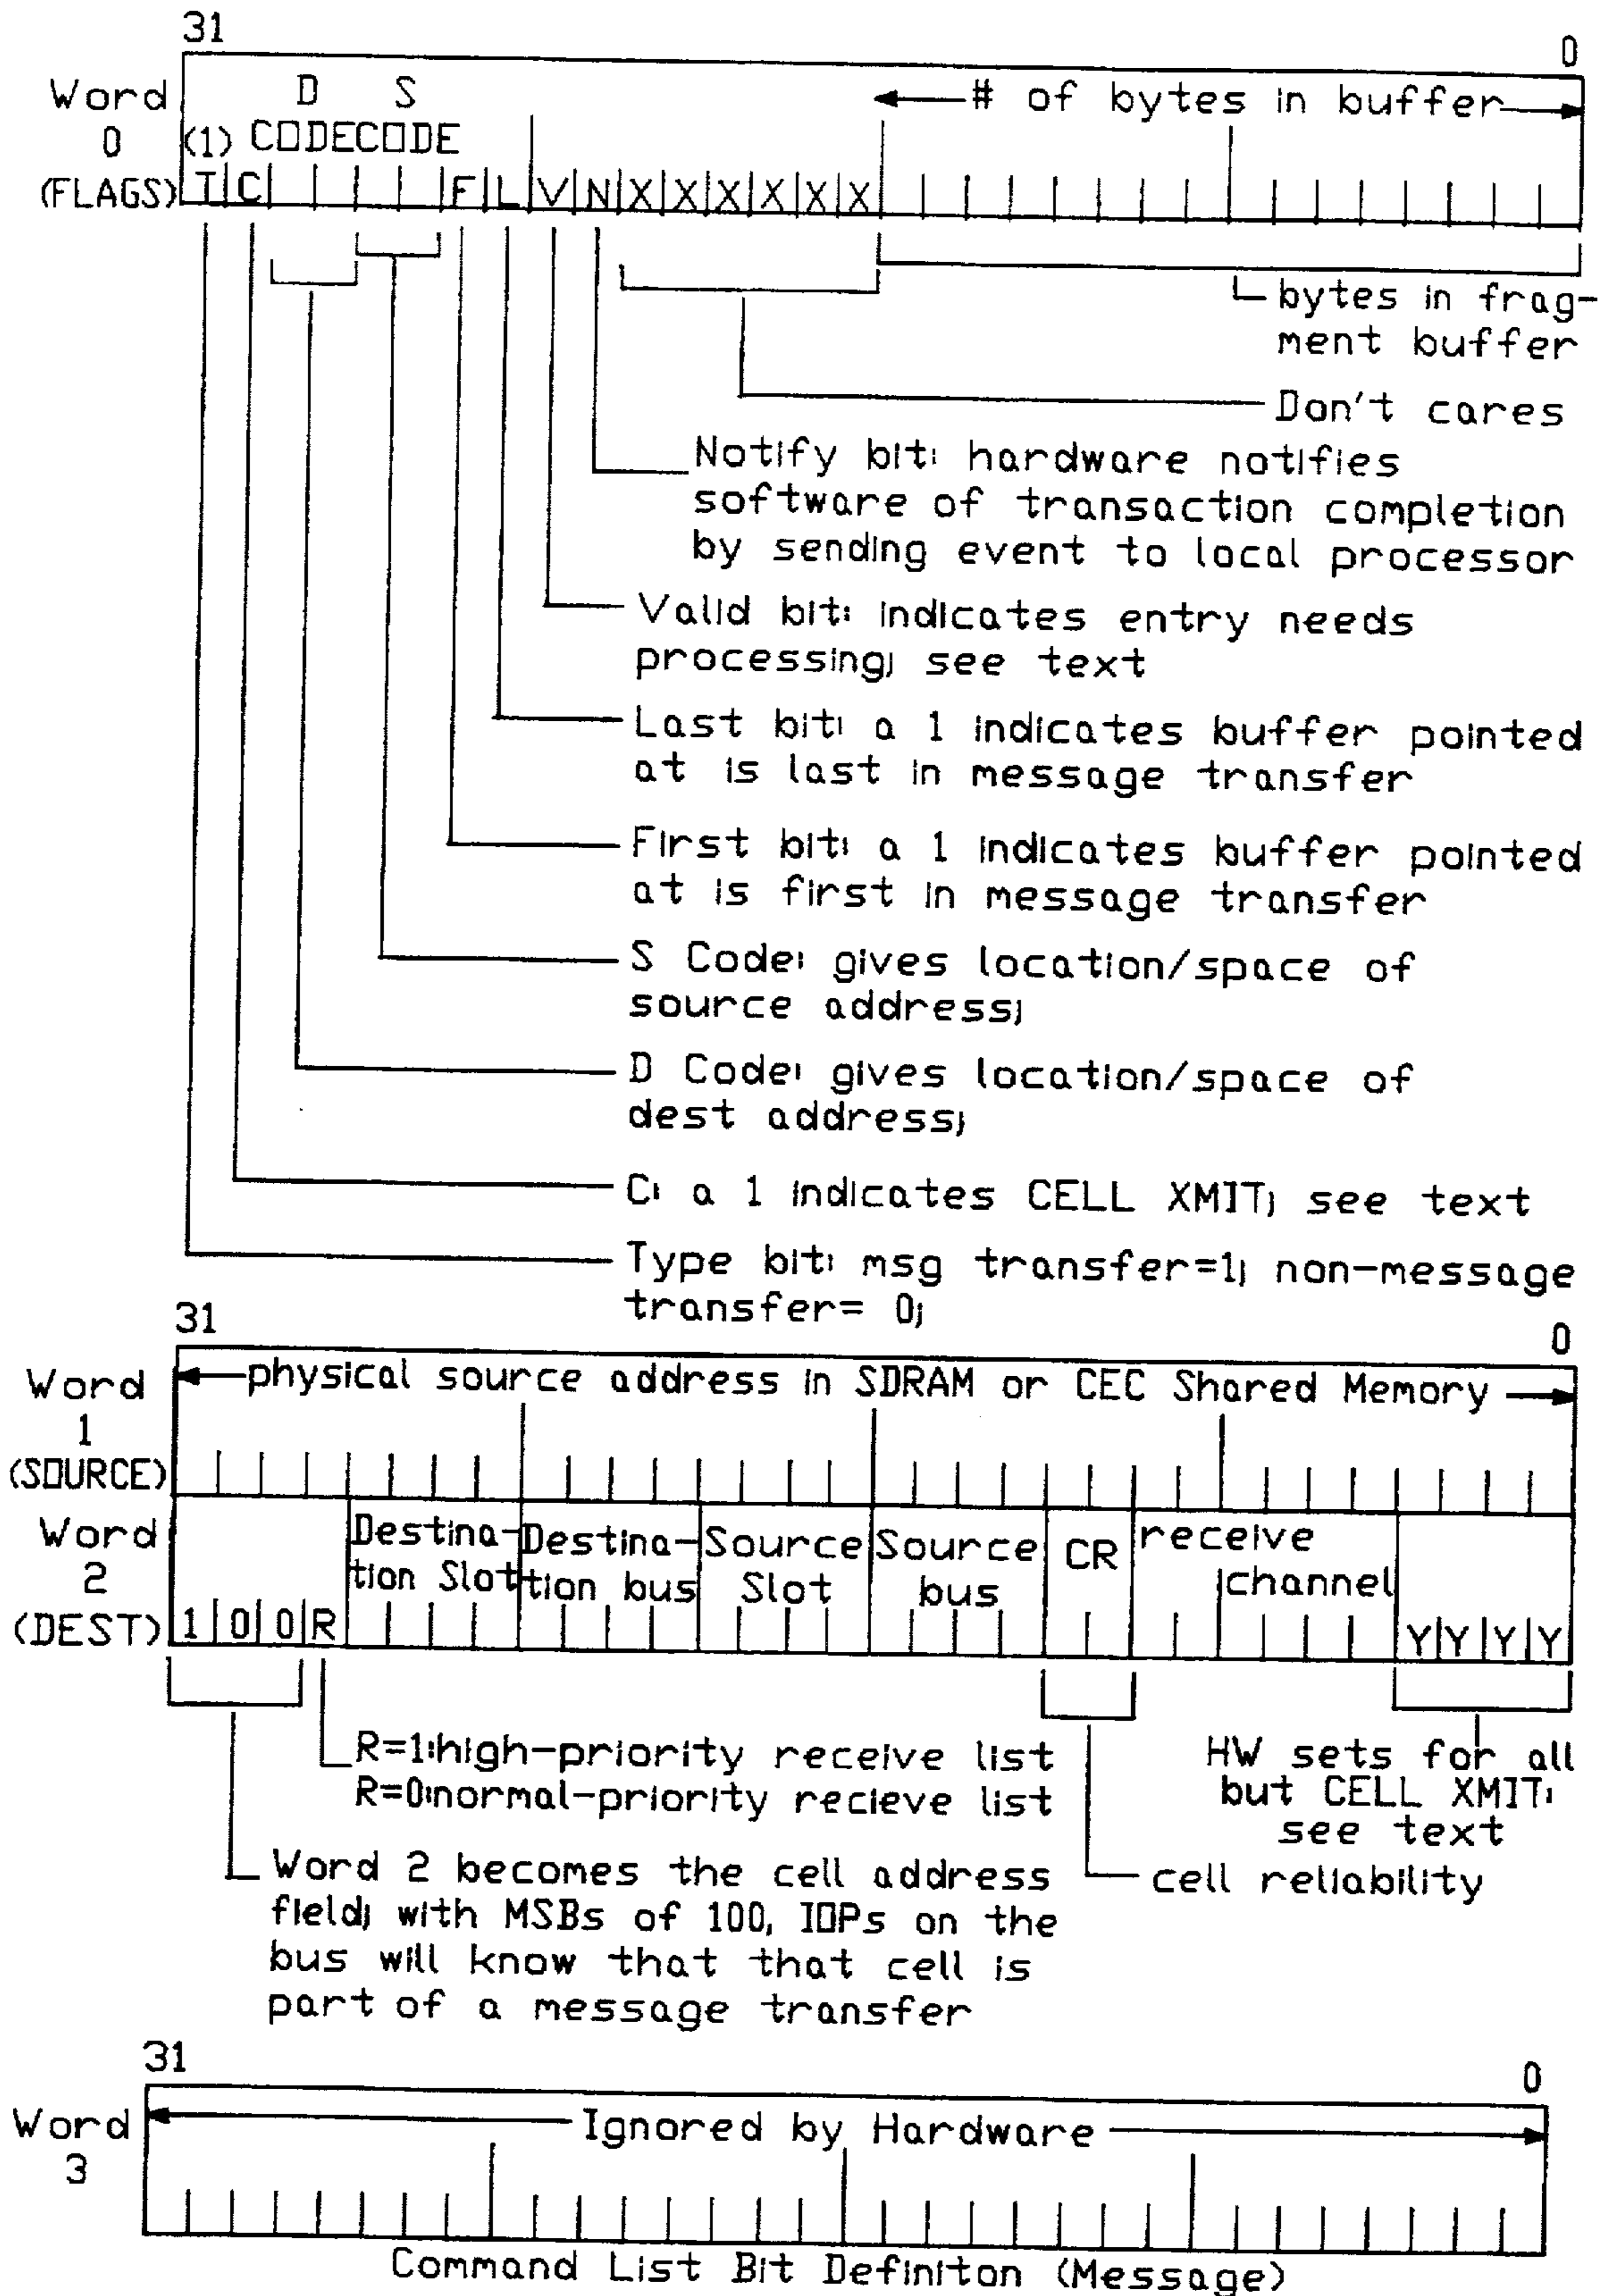 31 0
Word D S # of bytes in buffer
0 (1) CODECODE
(FLAGS) T C F L V N X X X X X X
bytes in frag-
ment buffer
Don't cares
Notify bit: hardware notifies
software of transaction completion
by sending event to local processor
Valid bit: indicates entry needs
processing; see text
Last bit: a 1 indicates buffer pointed
at is last in message transfer
First bit: a 1 indicates buffer pointed
at is first in message transfer
S Code: gives location/space of
source address;
D Code: gives location/space of
dest address;
C: a 1 indicates CELL XMIT; see text
Type bit: msg transfer=1; non-message
transfer= 0;
31 0
Word physical source address in SDRAM or CEC Shared Memory
1
(SOURCE)
Word Destina- Destina- Source Source CR receive
2 tion Slot tion bus Slot bus channel
(DEST) 1 0 0 R Y Y Y Y
R=1:high-priority receive list
R=0:normal-priority recieve list
HW sets for all
but CELL XMIT:
see text
cell reliability
Word 2 becomes the cell address
field; with MSBs of 100, IOPs on the
bus will know that that cell is
part of a message transfer
31 0
Word Ignored by Hardware
3
Command List Bit Definiton (Message)